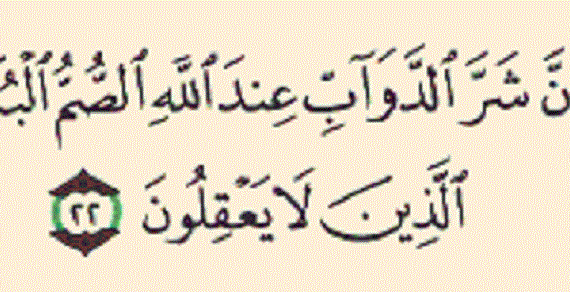 نَّ شَرَّ ٱلدَّوَآبِّ عِندَ ٱللَّهِ ٱلصُّمُّ ٱلْبُ
ٱلَّذِينَ لَا يَعْقِلُونَ ٢٢